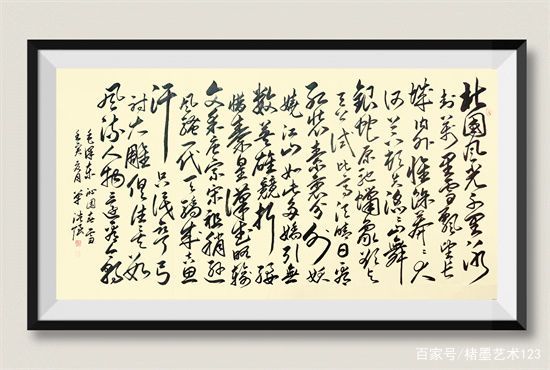 北國风光千里冰
封萬里雪飘望长
城内外惟馀莽莽大
河上下顿失滔滔山舞
銀蛇原驰蠟象欲与
天公试比高须晴日看
红装素裹分外妖
娆江山如此多娇引无
数英雄竞折腰
惜秦皇汉武略输
文采唐宗宋祖稍逊
风骚一代天骄成吉思
汗只识弯弓
射大雕俱往矣数
风流人物还看今朝
毛泽东沁园春雪
百家号/楮墨艺术123